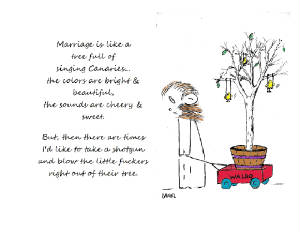 Marriage is like a
tree full of
singing Canaries...
the colors are bright &
beautiful,
the sounds are cheery &
sweet.
But, then there are times
I'd like to take a shotgun
and blow the little fuckers
right out of their tree.